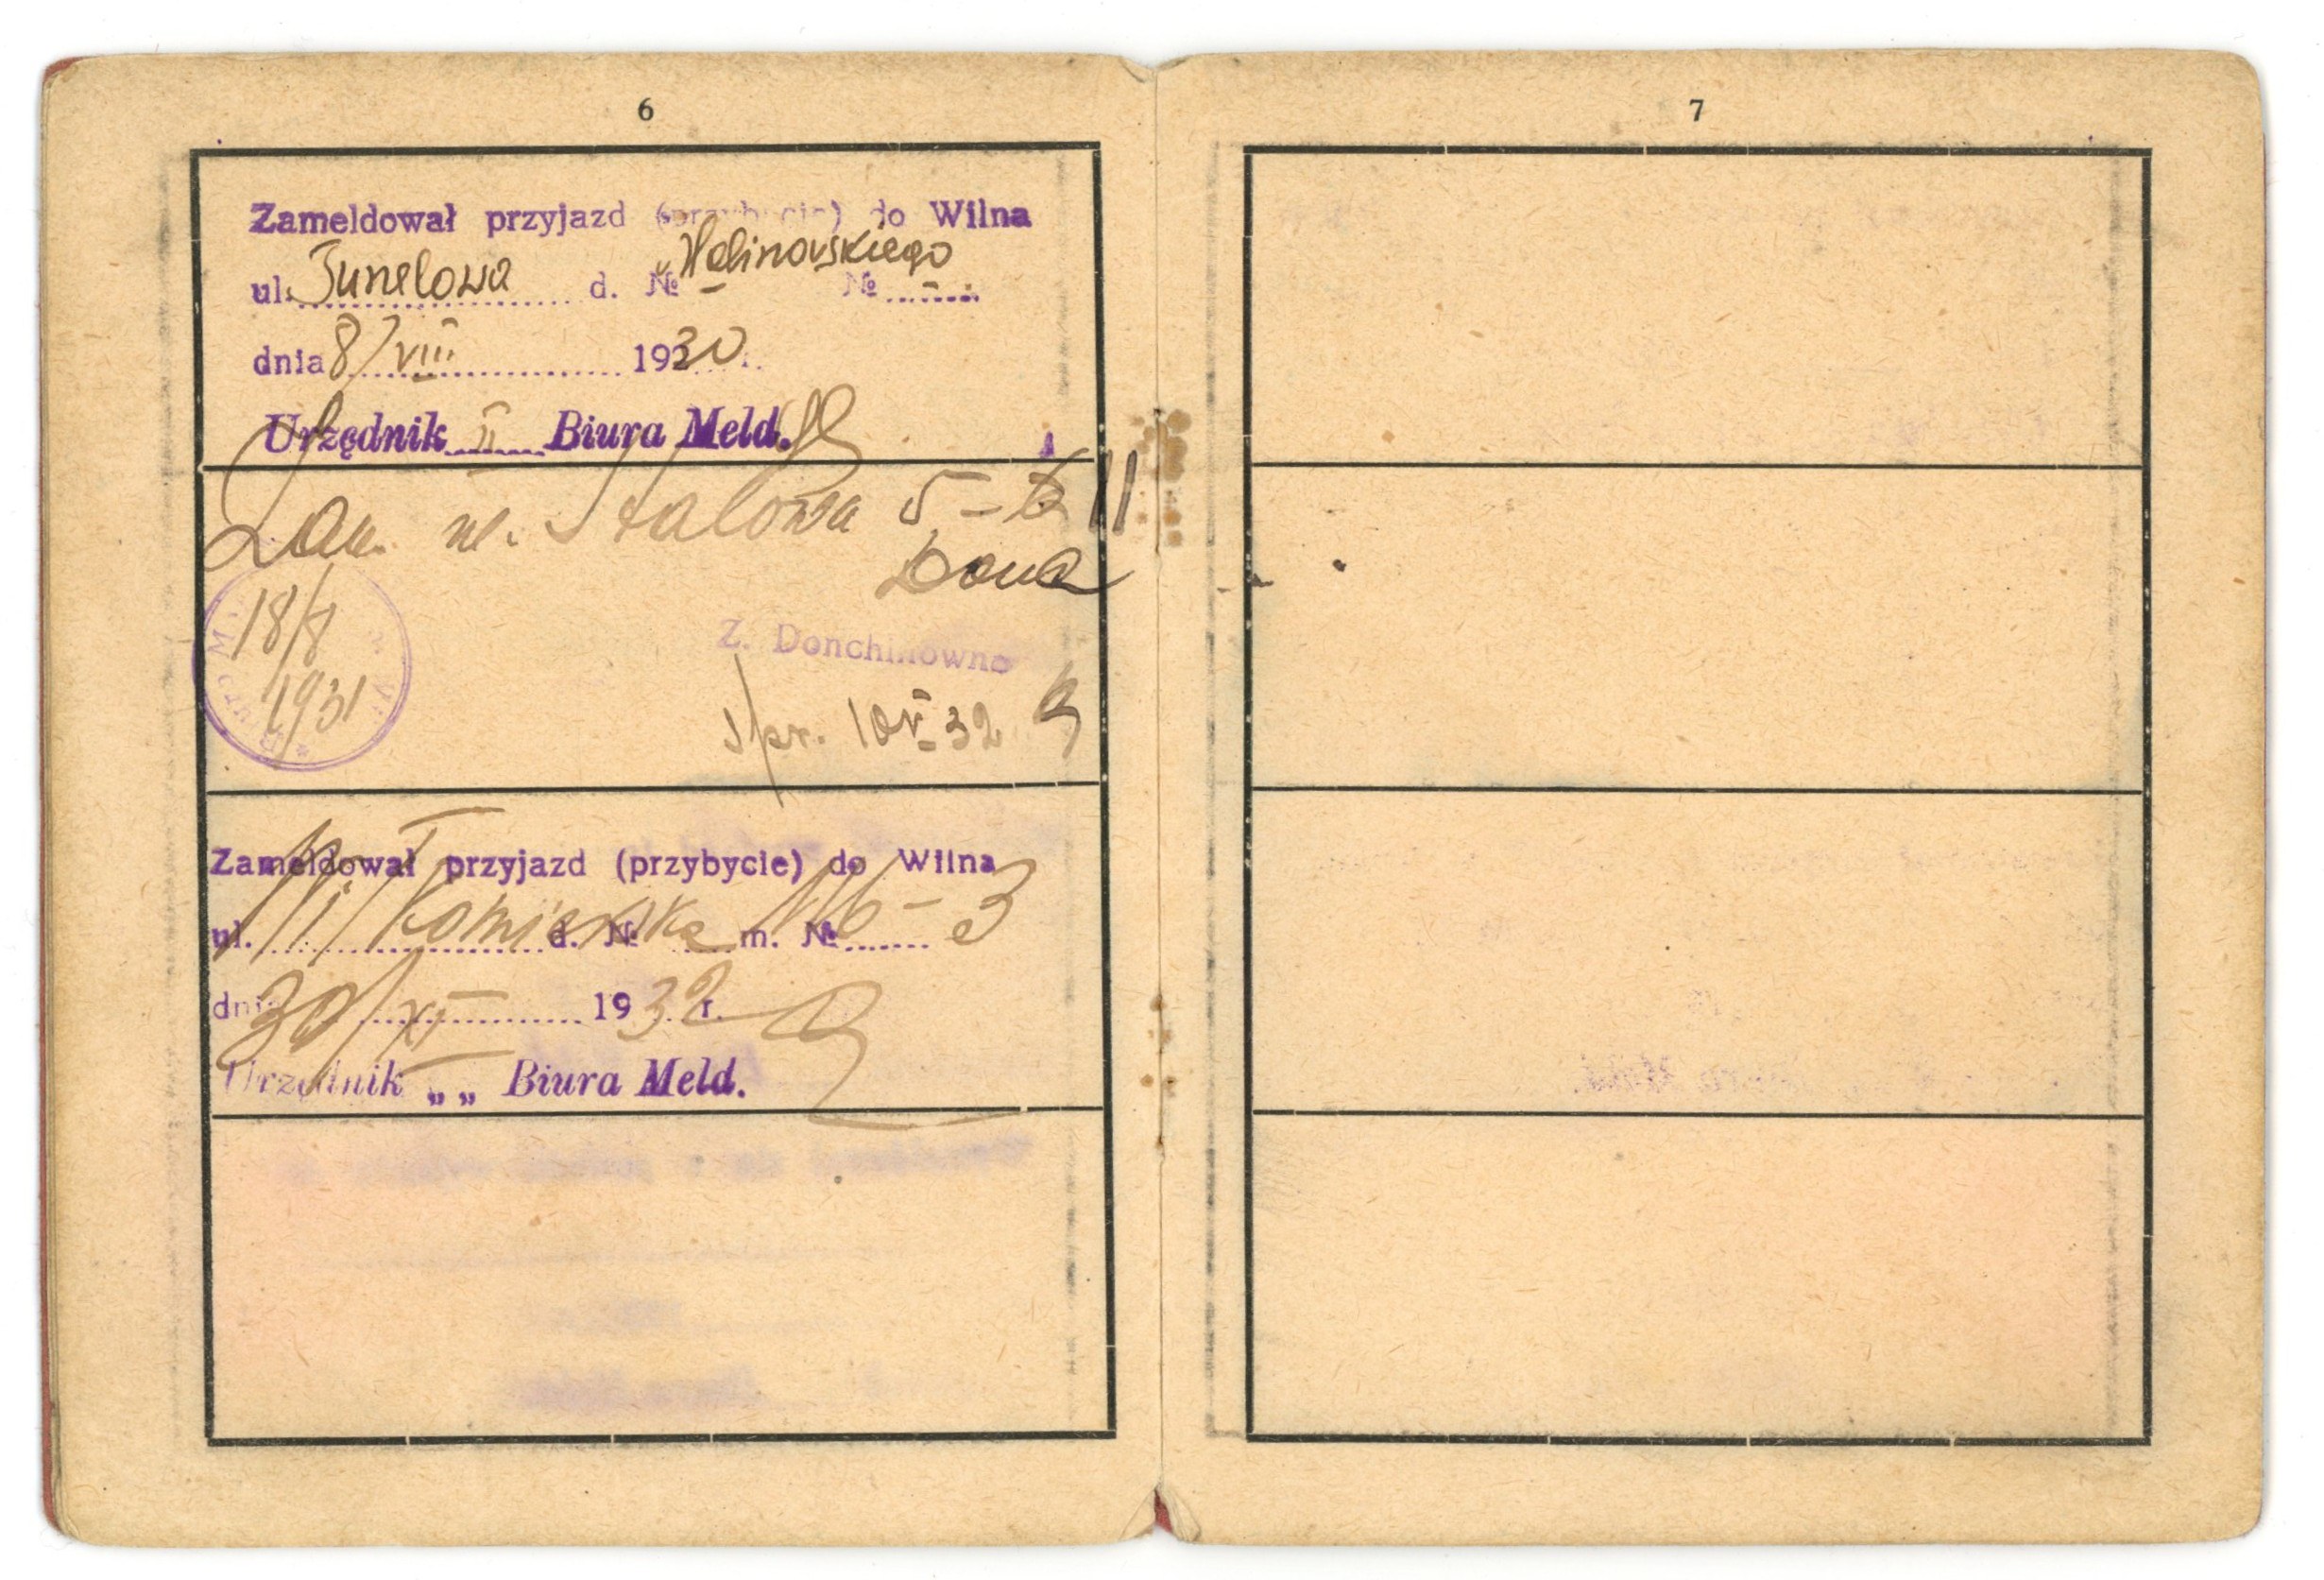 6
Zameldował przyjazd (przybycie) do Wilna
ul. Tunelowa d. № "Walinowskiego №
dnia 8/VIII 1930
Urzędnik II Biura Meld.
Zam. ul. Stalowa 5 - 11
Z. Donchinówna
18/8
1931
Spr. 10 VI 32
Zameldował przyjazd (przybycie) do Wilna
ul. d. № m. № 3
dnia 30/XI 1932 r.
Urzędnik „ „ Biura Meld.
7